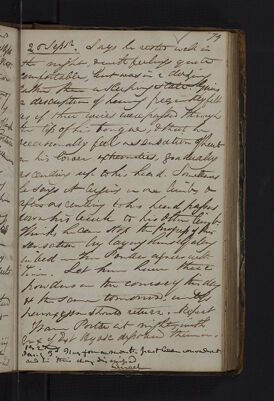 79
20 Septr. Says he rested well in
the night, & with feelings quite
comfortable, but was in a dozing
rather than a sleeping state. Gives
a description of having frequently felt
as if three wires were passed through
the tip of his tongue, & that he
occasionally felt a sensation of heat
in his lower extremities, gradually
ascending up to his head. Sometimes
he says it begins in one limb, &
after ascending to his head passes
down his back to his other limb.
Thinks he can stop the progress of this
sensation by laying himself along
in bed — the Porter agrees with
him. Let him have three
powders in the course of this day
& the same tomorrow, in
should return. Repeat
Warm Porter at night with
of last
Jany.
and is this day discharged